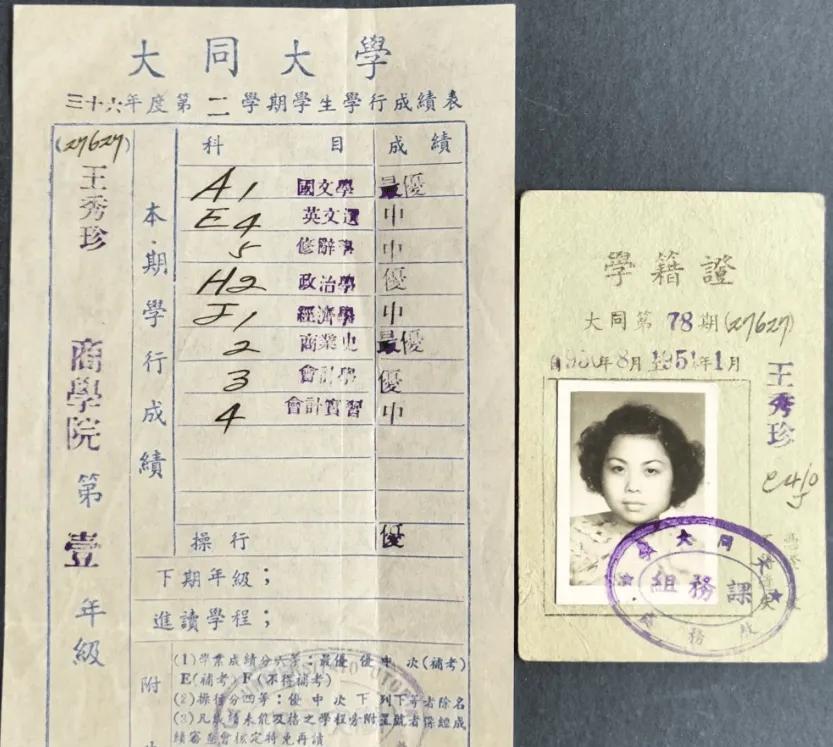 大同大學
三十六年度第二學期學生學行成績表
(27627)
王秀珍
商學院 第壹年級
本期學行成績
科目 成績
A1 國文學 最優
E4 英文選 中
5 修辭學 中
H2 政治學 優
J1 經濟學 中
2 商業史 最優
3 會計學 優
4 會計實習 中
操行 優
下期年級;
進讀學程;
附
(1)學業成績分六等:最優 優 中 次(補考)
E(補考) F(不得補考)
(2)操行分四等:優 中 次 下 列下等者除名
(3)凡成績未能及格之學程旁附
學籍證
大同第78期(27627)
自1950年8月至1951年1月
王秀珍
大同
課務組